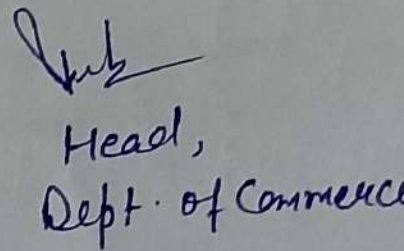 Head,
Dept. of Commerce